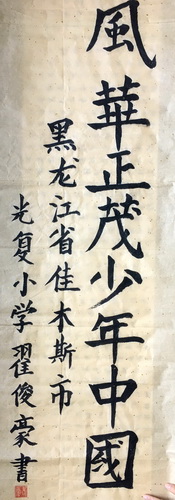 風華正茂少年中國
黑龙江省佳木斯市
光复小学翟俊豪書